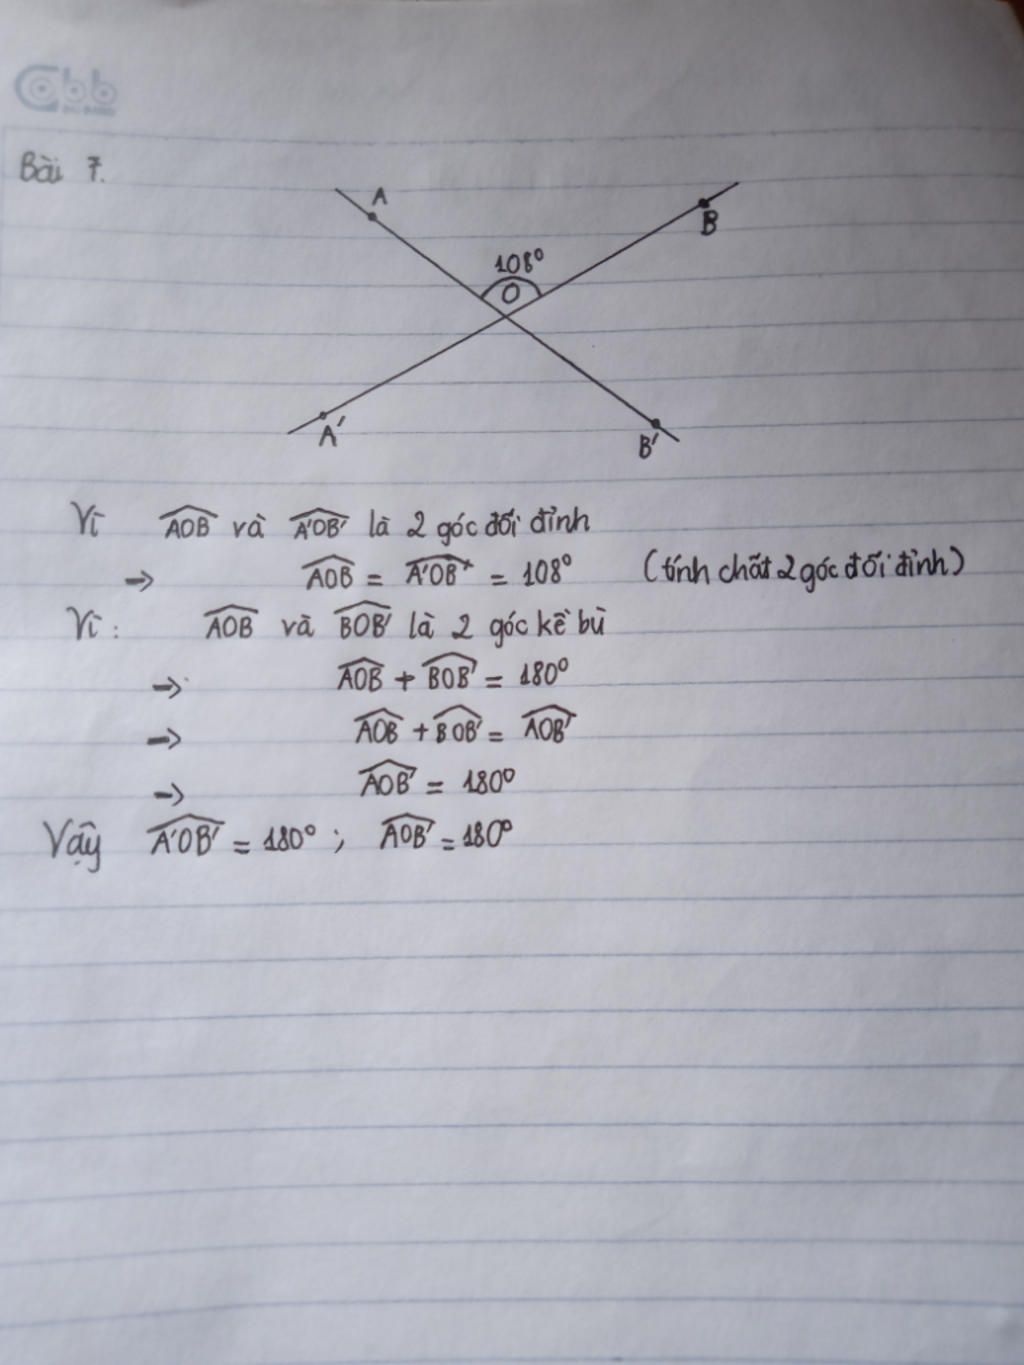 Cobb
Bài 7.
A
B
108°
O
A'
B'
Vì AOB và A'OB' là 2 góc đối đỉnh
→ AOB = A'OB' = 108° (tính chất 2 góc đối đỉnh)
Vì: AOB và BOB' là 2 góc kề bù
→ AOB + BOB' = 180°
→ AOB + BOB' = AOB'
→ AOB' = 180°
Vậy A'OB' = 180° ; AOB' = 180°